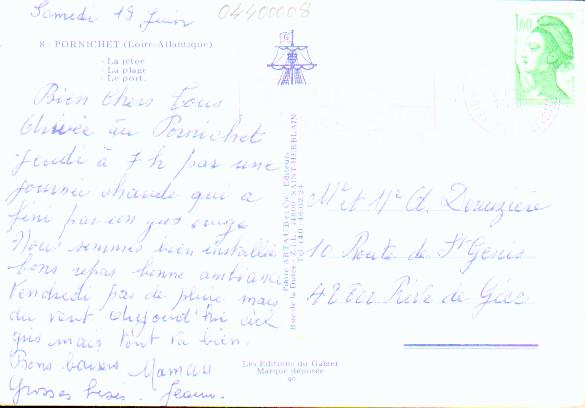 Samedi 19 Juin
04400008
8 - PORNICHET (Loire-Atlantique)
- La jetée
- La plage
- Le port.
Bien chers tous
Arrivée au Pornichet
jeudi à 7 h par une
journée chaude qui a
fini par un gros orage
Nous sommes bien installées
bons repas bonne ambiance
Vendredi pas de pluie mais
du vent aujourd'hui ciel
gris mais tout va bien.
Bons baisers Maman
Grosses bises. Jeanne.
Pierre ARTAUD et Cie - Editeurs
Rue de la Durée Z.I.L. 44800 SAINT-HERBLAIN
1,60
Mr et Mme A.
10 Route de St Genis
42800 Rive de Gier
Les Editions du Gabier
Marque déposée